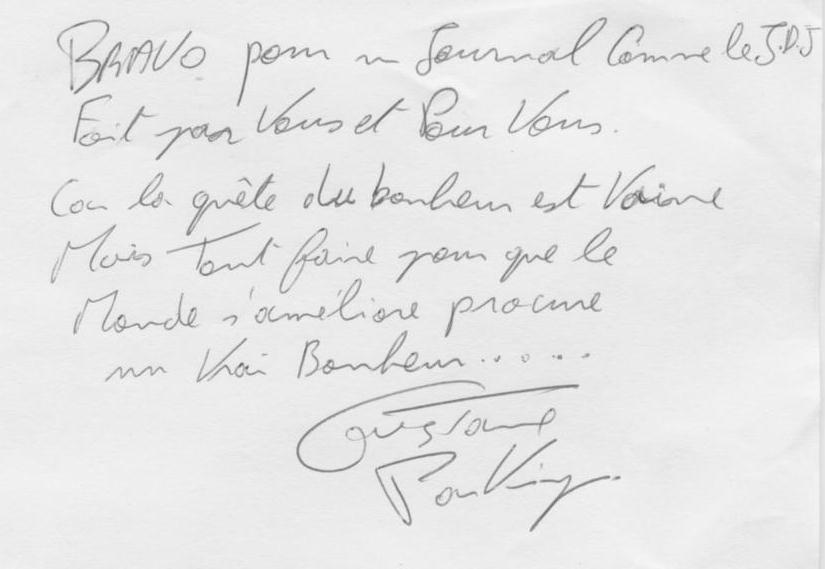 BRAVO pour un Journal Comme le J.D.J
Fait par Vous et Pour Vous.
Car la quête du bonheur est Vaine
Mais Tout faire pour que le
Monde s'améliore procure
un Vrai Bonheur......
Gustave